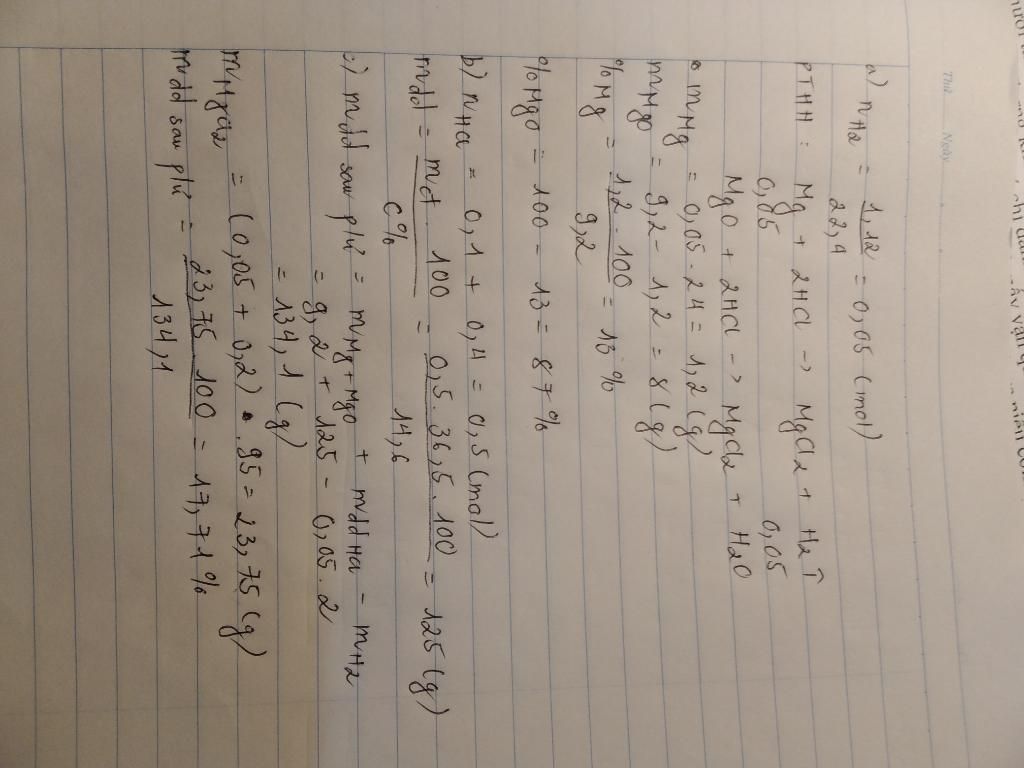 Thứ Ngày
a) nH2 = 1,12 / 22,4 = 0,05 (mol)
PTHH : Mg + 2HCl -> MgCl2 + H2↑
0,05 0,05
MgO + 2HCl -> MgCl2 + H2O
• mMg = 0,05 . 24 = 1,2 (g)
mMgO = 9,2 - 1,2 = 8 (g)
% Mg = 1,2 . 100 / 9,2 = 13 %
% MgO = 100 - 13 = 87 %
b) nHCl = 0,1 + 0,4 = 0,5 (mol)
mdd = mct . 100 / C% = 0,5 . 36,5 . 100 / 14,6 = 125 (g)
c) mdd sau pư = mMg + MgO + mddHCl - mH2
= 9,2 + 125 - 0,05 . 2
= 134,1 (g)
mMgCl2 = (0,05 + 0,2) . 95 = 23,75 (g)
mdd sau pư = 23,75 . 100 / 134,1 = 17,71 %